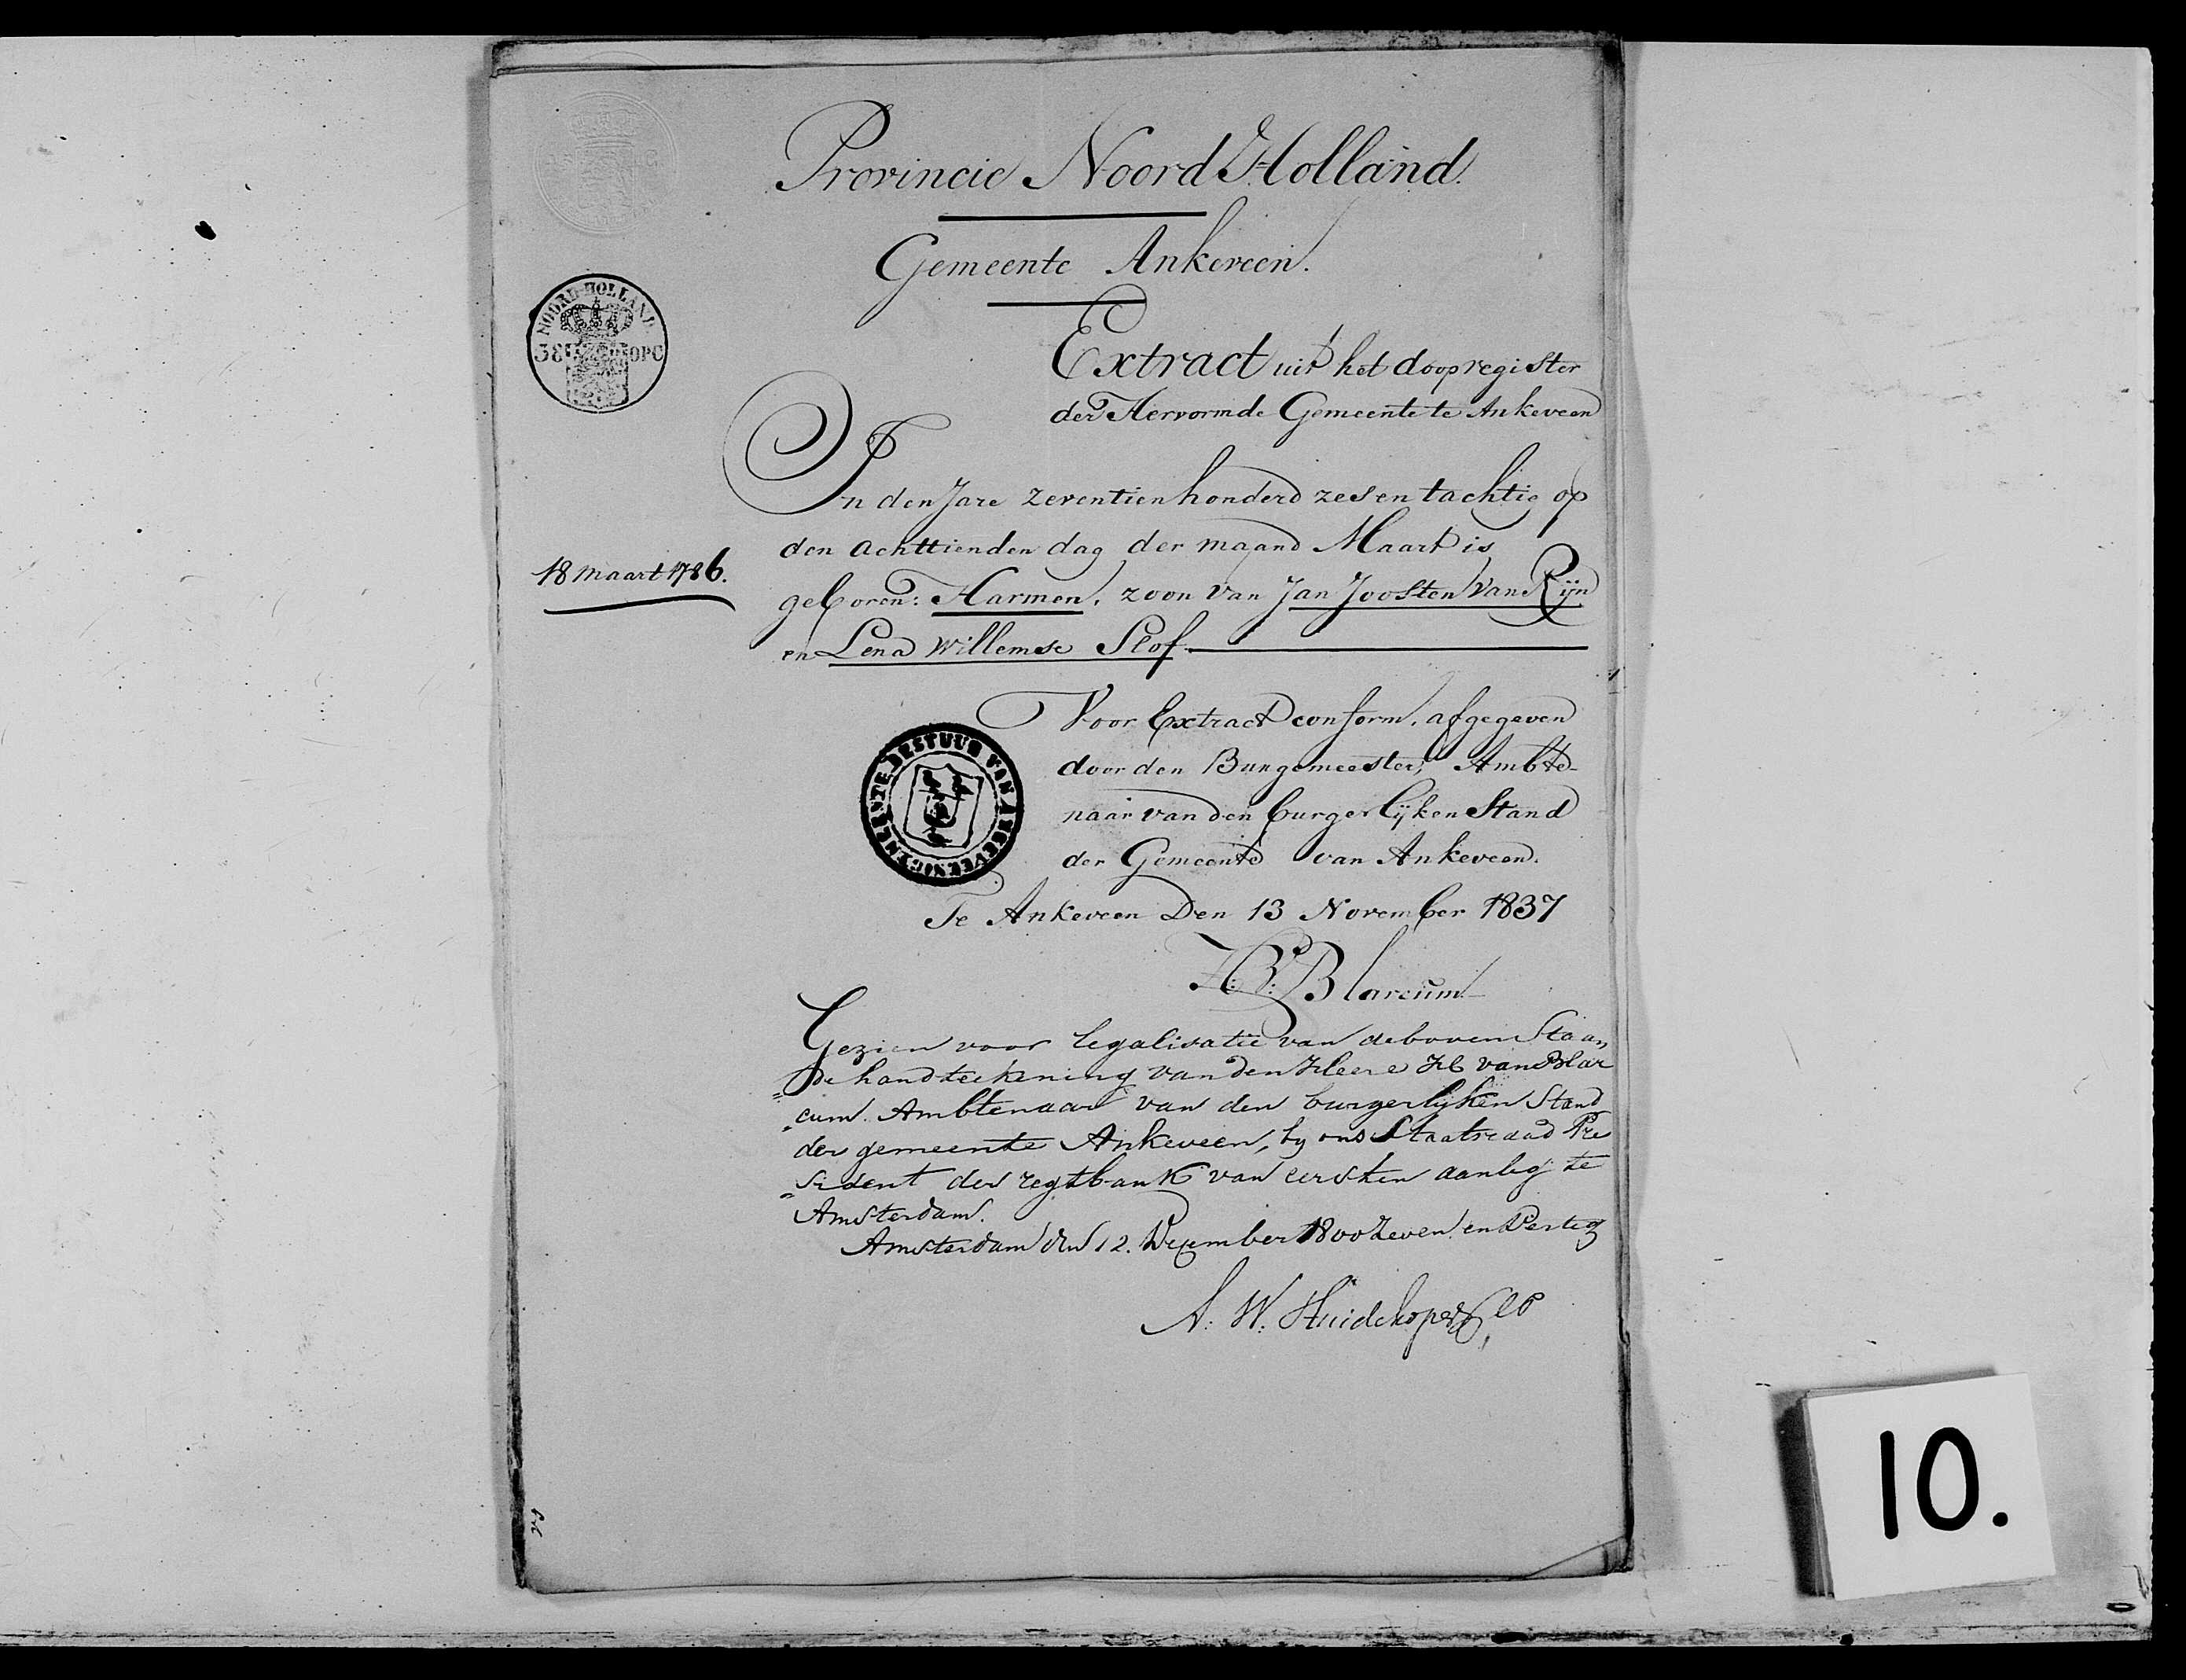 Provincie Noord Holland.
Gemeente Ankeveen.
NOORD-HOLLAND
38 OPC
Extract uit het doopregister
der Hervormde Gemeente te Ankeveen
In den Jare zeventien honderd zes en tachtig op
den achttienden dag der maand Maart is
18 maart 1786.
geboren: Harmen, zoon van Jan Joosten Van Rijn
en Lena Willemse Slof.
Voor Extract conform, afgegeven
door den Burgemeester, Ambte-
naar van den burgerlijken Stand
der Gemeente van Ankeveen.
GEMEENTE BESTUUR VAN ANKEVEEN
Te Ankeveen Den 13 November 1837
H: V: Blarcum
Gezien voor legalisatie van deboven Staan
=de handteekening van den Heere H van Blar
=cum Ambtenaar van den burgerlijken Stand
der gemeente Ankeveen, by ons Staatsraad Pre
=sident der regtbank van eersten aanleg te
Amsterdam.
Amsterdam den 12. December 1800 Zeven en Dertig
A: W: Huidekoper
10.